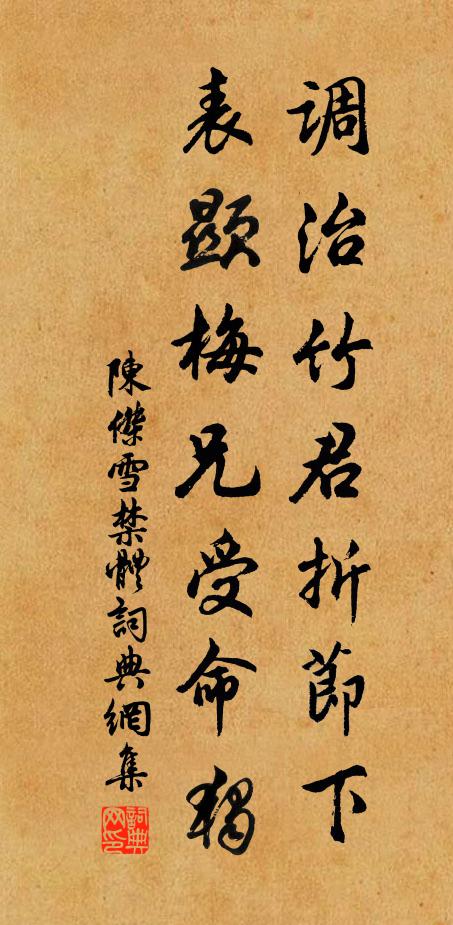 調治竹君折節下
表顯梅兄受命獨
陳傑雪禁體詞典網集
詞典网印